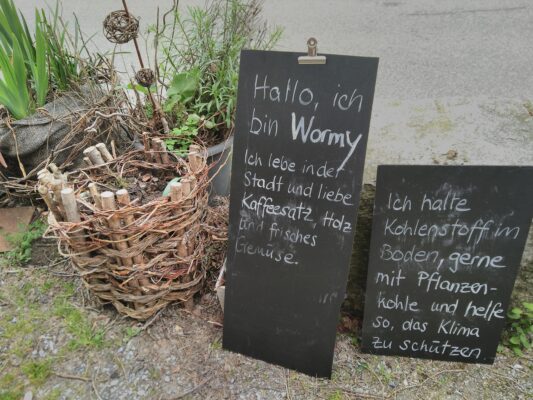 Hallo, ich
bin Wormy
Ich lebe in der
Stadt und liebe
Kaffeesatz, Holz
und frisches
Gemüse.
Ich halte
Kohlenstoff im
Boden, gerne
mit Pflanzen-
kohle und helfe
so, das Klima
zu schützen.